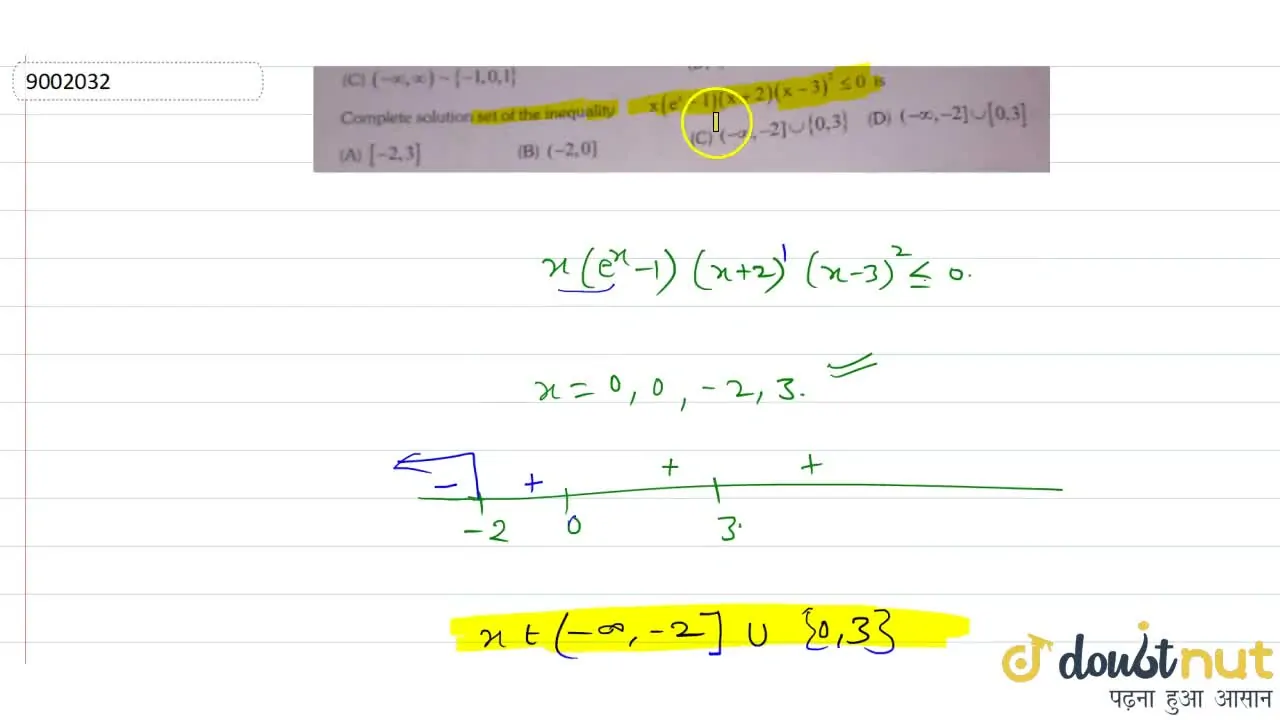 9002032
(C) (−∞,∞) ~ {−1,0,1}
Complete solution set of the inequality x(eˣ − 1)(x + 2)(x − 3)² ≤ 0 is
(A) [−2,3] (B) (−2,0] (C) (−∞,−2]∪{0,3} (D) (−∞,−2]∪[0,3]
x(eˣ−1)(x+2)¹(x−3)² ≤ 0.
x = 0, 0, −2, 3.
− + + +
−2 0 3.
x ∈ (−∞,−2] ∪ {0,3}
doubtnut
पढ़ना हुआ आसान